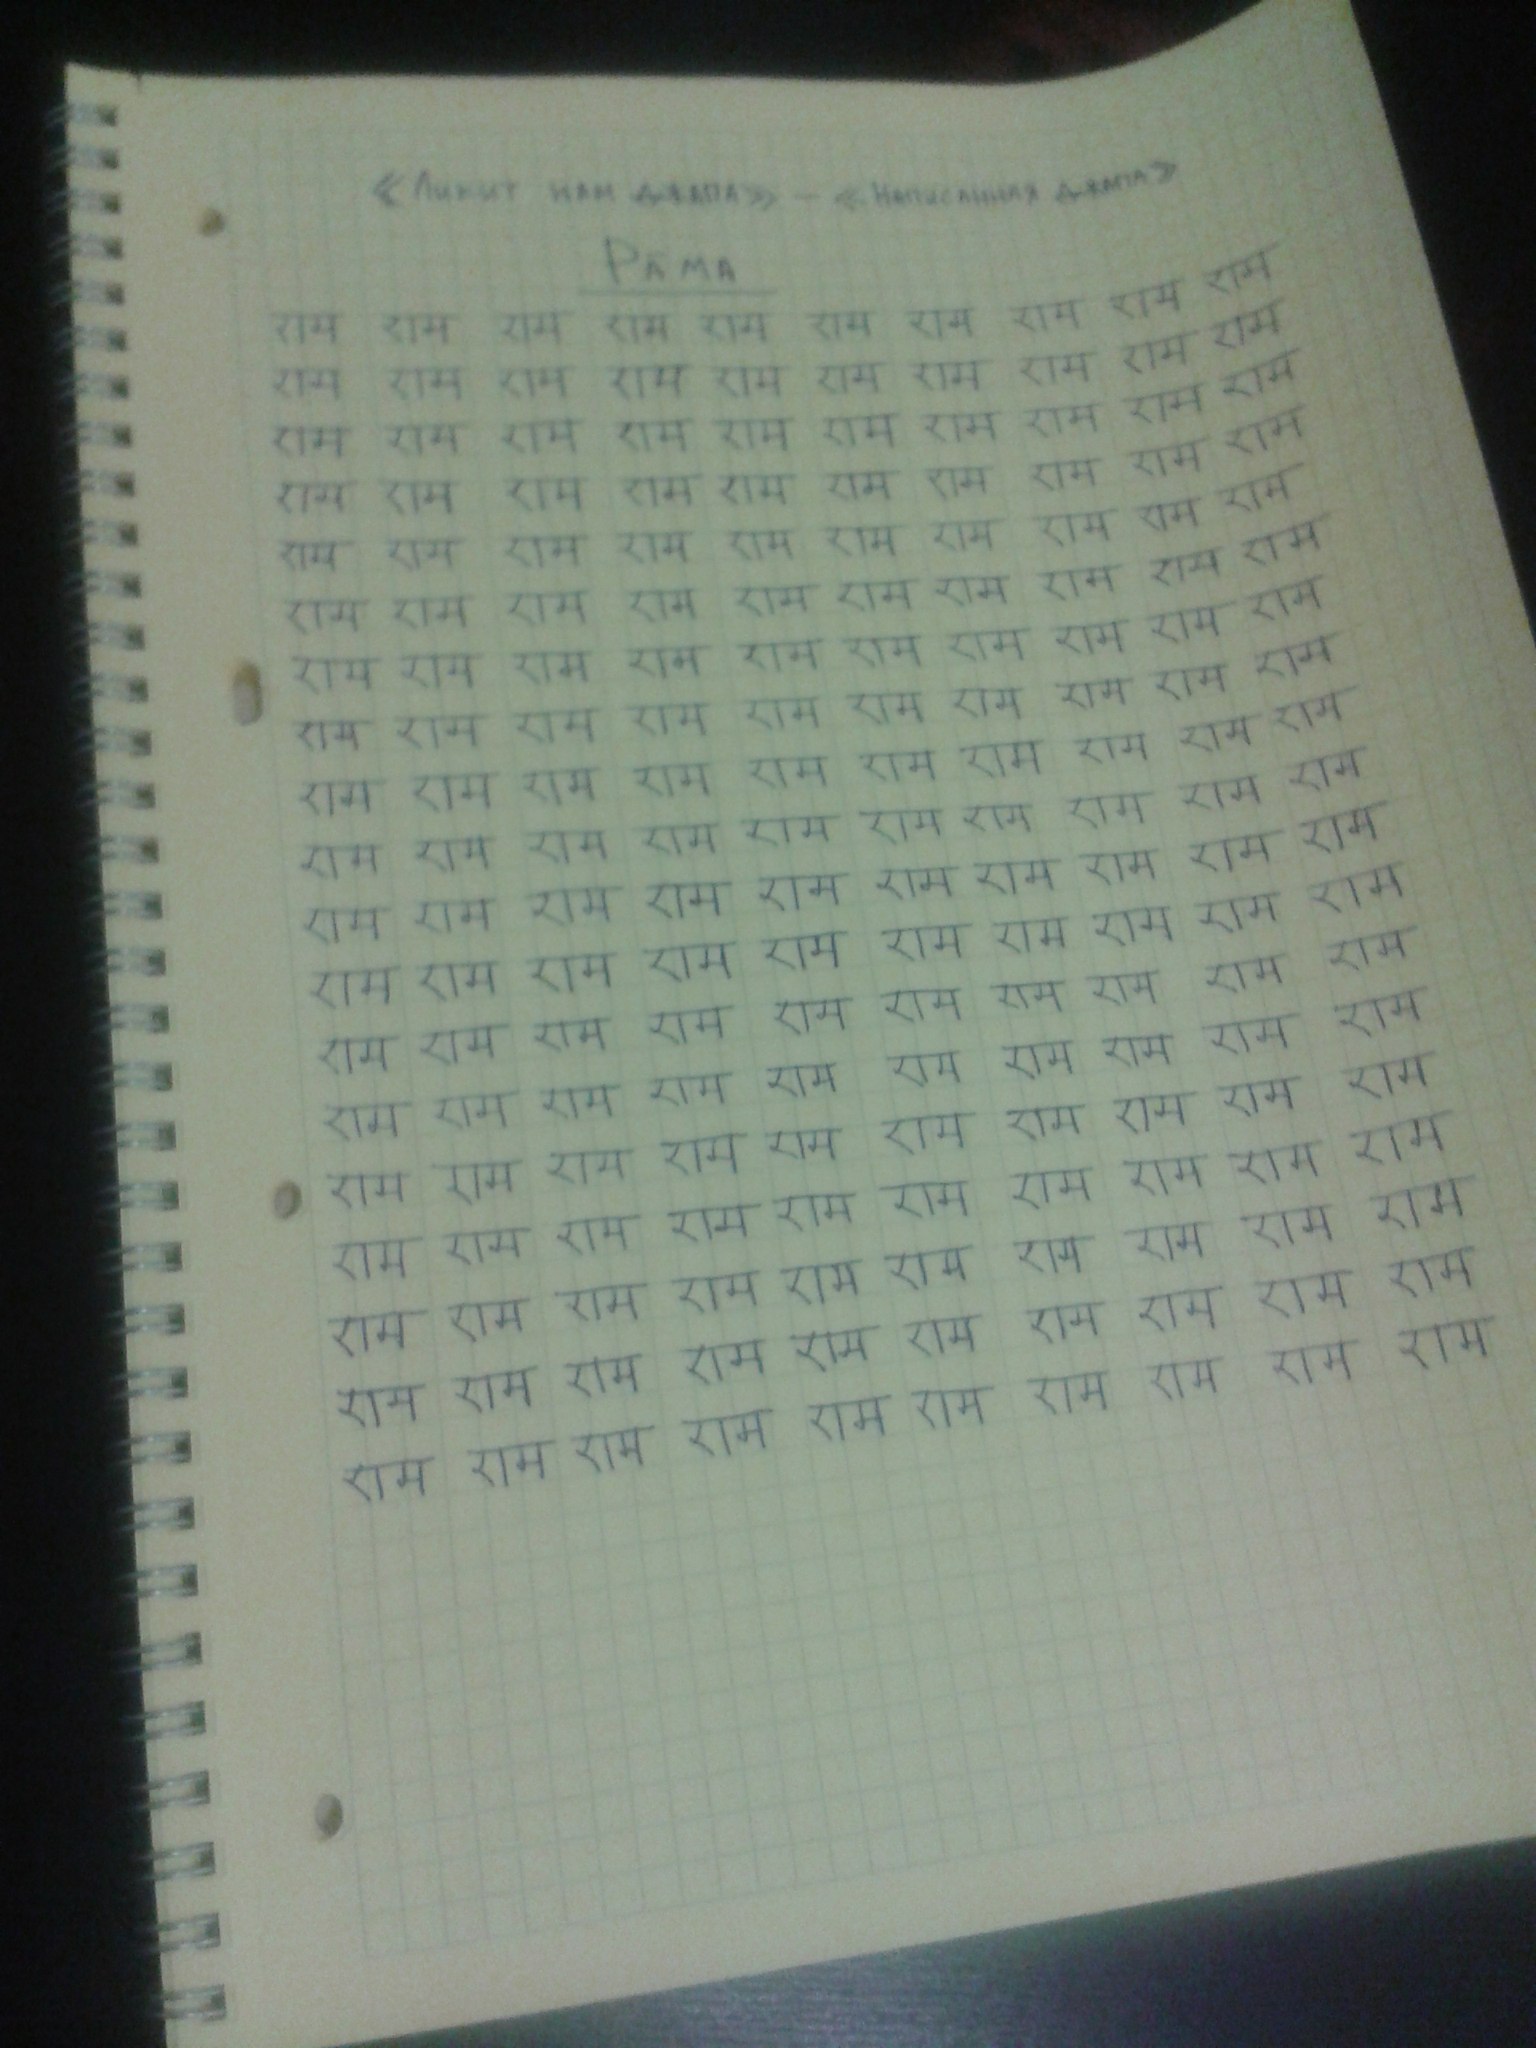 «Ликит нам джапа» – «Написанная джапа»
Рāма
राम राम राम राम राम राम राम राम राम राम
राम राम राम राम राम राम राम राम राम राम
राम राम राम राम राम राम राम राम राम राम
राम राम राम राम राम राम राम राम राम राम
राम राम राम राम राम राम राम राम राम राम
राम राम राम राम राम राम राम राम राम राम
राम राम राम राम राम राम राम राम राम राम
राम राम राम राम राम राम राम राम राम राम
राम राम राम राम राम राम राम राम राम राम
राम राम राम राम राम राम राम राम राम राम
राम राम राम राम राम राम राम राम राम राम
राम राम राम राम राम राम राम राम राम राम
राम राम राम राम राम राम राम राम राम राम
राम राम राम राम राम राम राम राम राम राम
राम राम राम राम राम राम राम राम राम राम
राम राम राम राम राम राम राम राम राम राम
राम राम राम राम राम राम राम राम राम राम
राम राम राम राम राम राम राम राम राम राम
राम राम राम राम राम राम राम राम राम राम